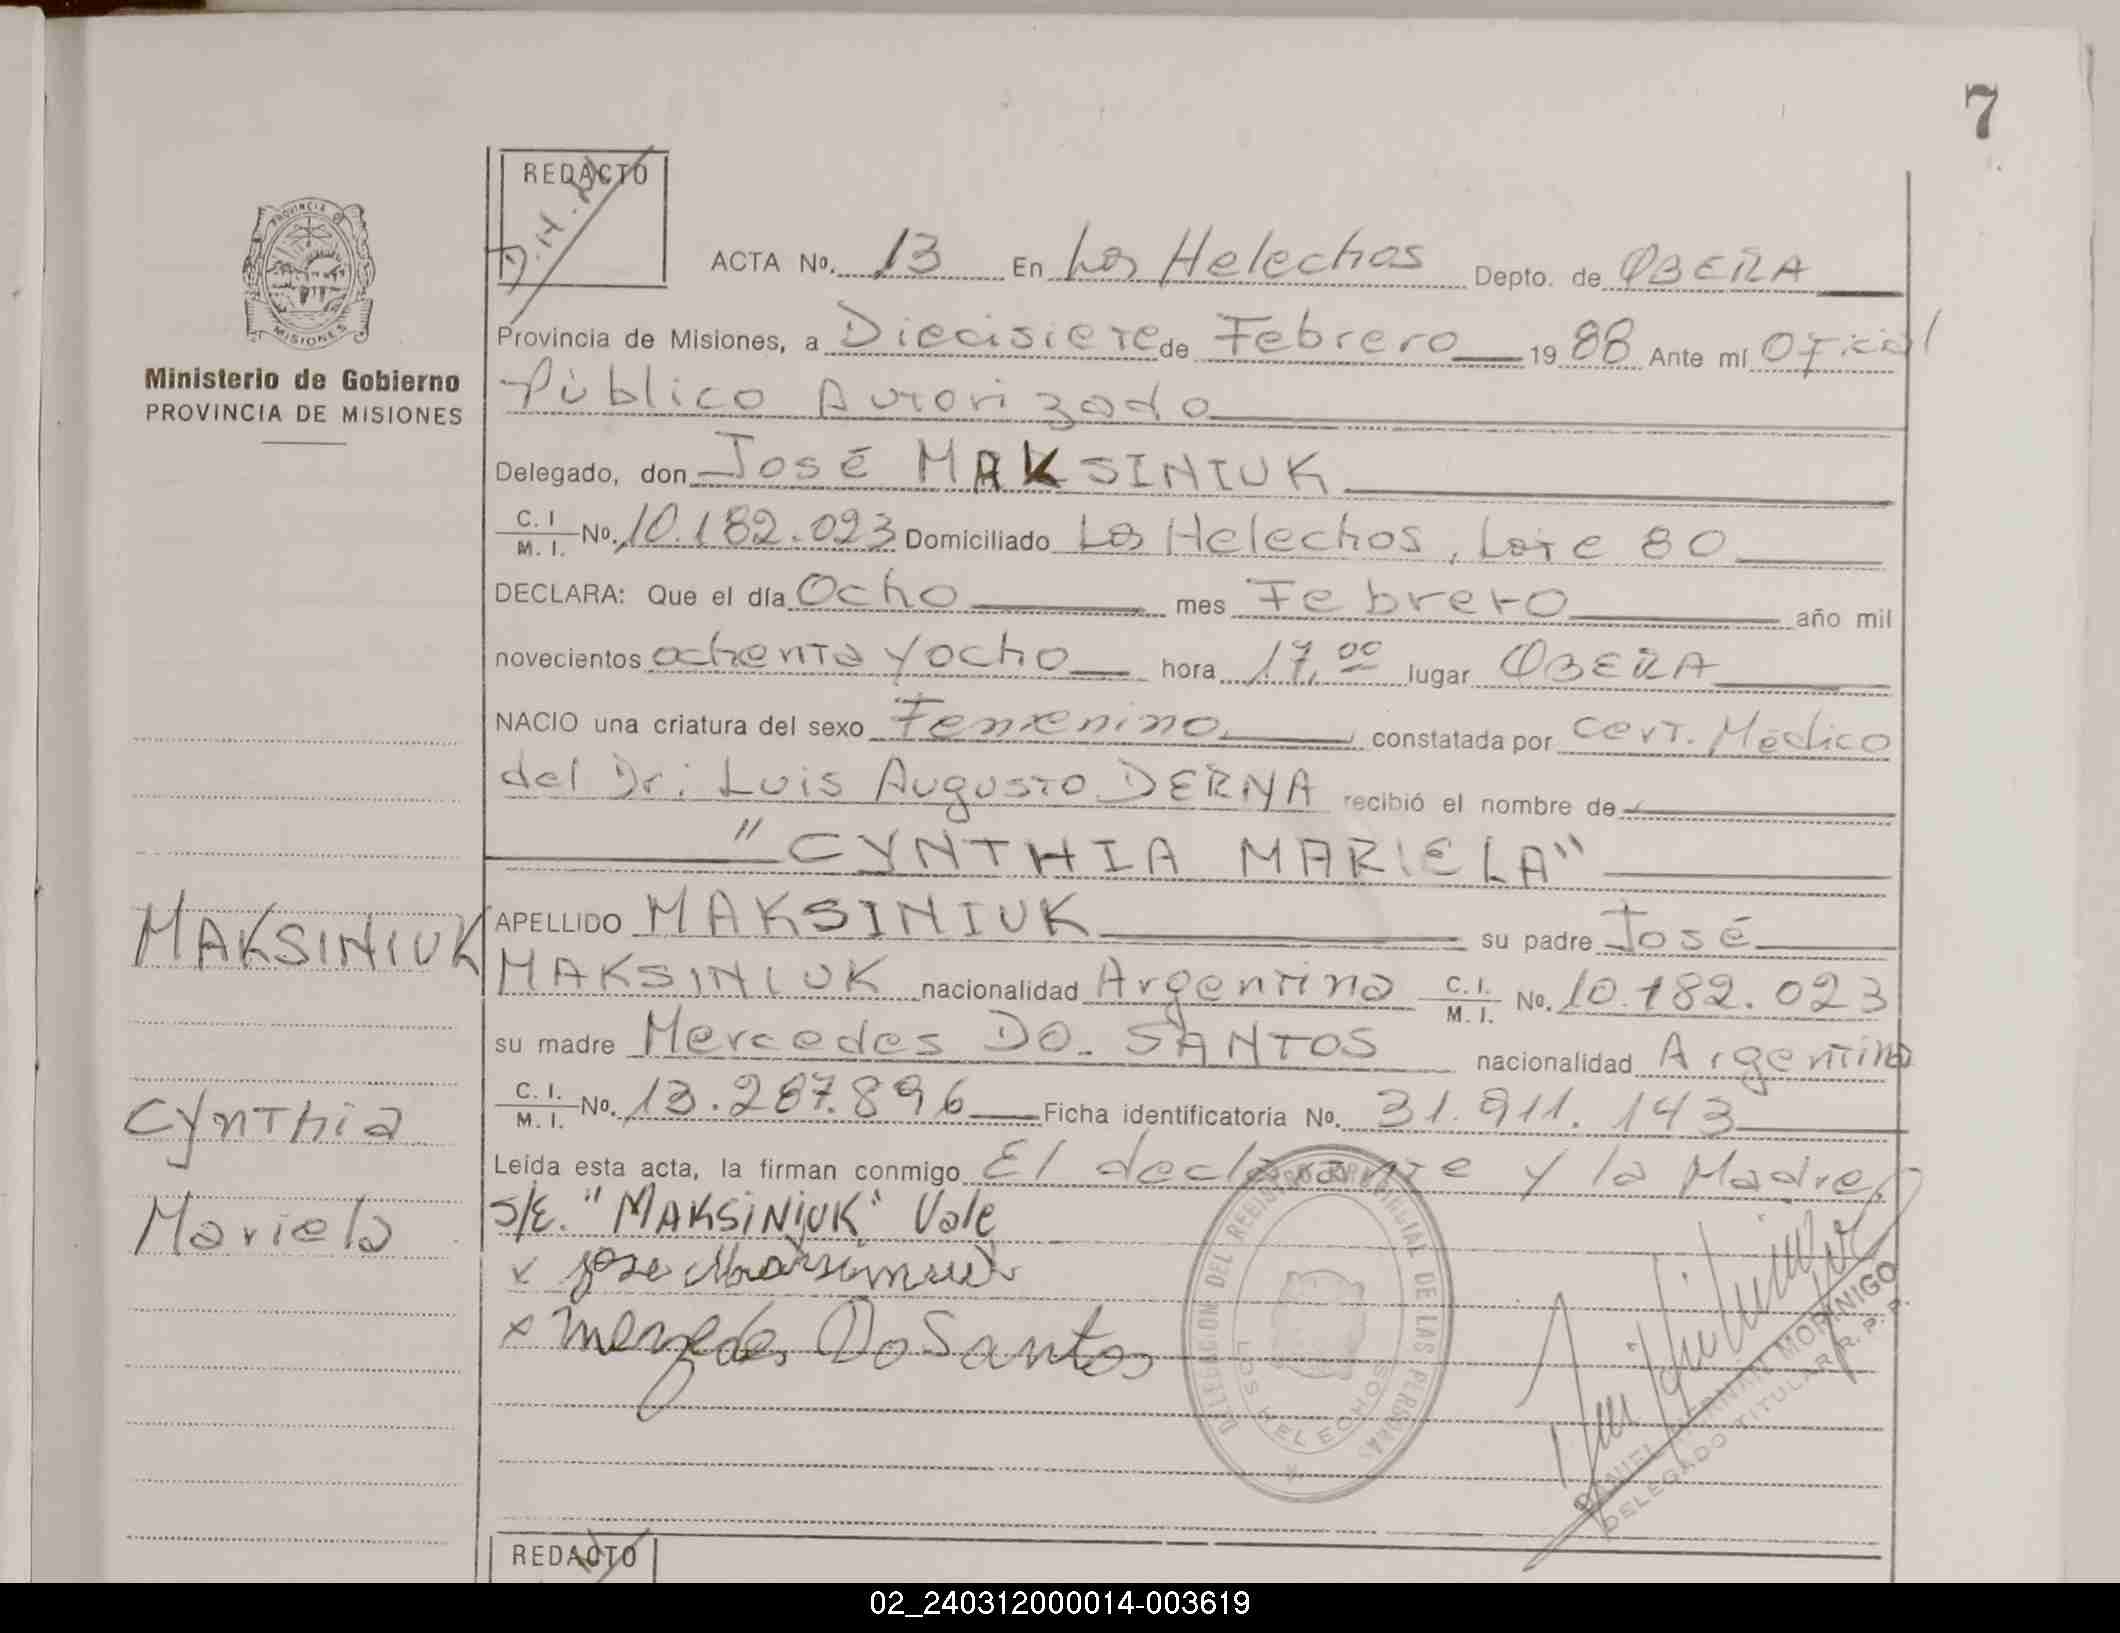 7
REDACTO
PROVINCIA DE
MISIONES
Ministerio de Gobierno
PROVINCIA DE MISIONES
ACTA No. 13 En Los Helechos Depto. de OBERA
Provincia de Misiones, a Diecisiete de Febrero 1988 Ante mí Oficial
Público Autorizado
Delegado, don José MAKSINIUK
C. I. M. I. No. 10.182.023 Domiciliado Los Helechos, Lote 80
DECLARA: Que el día Ocho mes Febrero año mil
novecientos ochenta y ocho hora 17,00 lugar OBERA
NACIO una criatura del sexo Femenino, constatada por Cert. Médico
del Dr. Luis Augusto DERNA recibió el nombre de
"CYNTHIA MARIELA"
APELLIDO MAKSINIUK su padre José
MAKSINIUK nacionalidad Argentina C. I. M. I. No. 10.182.023
su madre Mercedes DO SANTOS nacionalidad Argentina
C. I. M. I. No. 13.287.896 Ficha identificatoria No. 31.911.143
Leída esta acta, la firman conmigo El declarante y la Madre.
S/E. "MAKSINIUK" Vale
x jose Maksiniuk
x Mercedes Do Santos
MAKSINIUK
Cynthia
Mariela
DELEGACION DEL REGISTRO PROVINCIAL DE LAS PERSONAS
LOS HELECHOS
DANIEL HERNAN MORINIGO
DELEGADO TITULAR R. P. P.
REDACTO
02_240312000014-003619